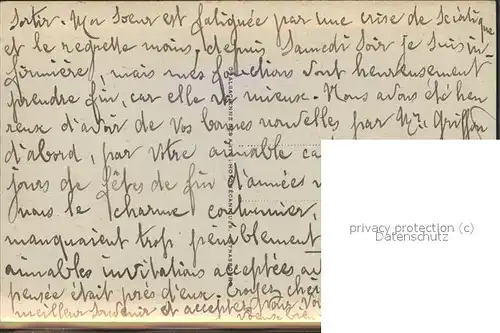 sortir. Ma soeur est fatiguée par une crise de sciatique
et le regrette moins, depuis Samedi soir je suis in-
firmière, mais mes fonctions vont heureusement
prendre fin, car elle va mieux. Nous avons été heu
reux d'avoir de vos bonnes nouvelles par Mme Griffon
d'abord, par votre aimable ca
jours de fêtes de fin d'années
mais le charme coutumier,
privacy protection (c)
Datenschutz
manquaient trop péniblement
aimables invitations acceptées au
pensée était près d'eux. Croyez chè
meilleur souvenir et acceptez pour vou
voeux bien